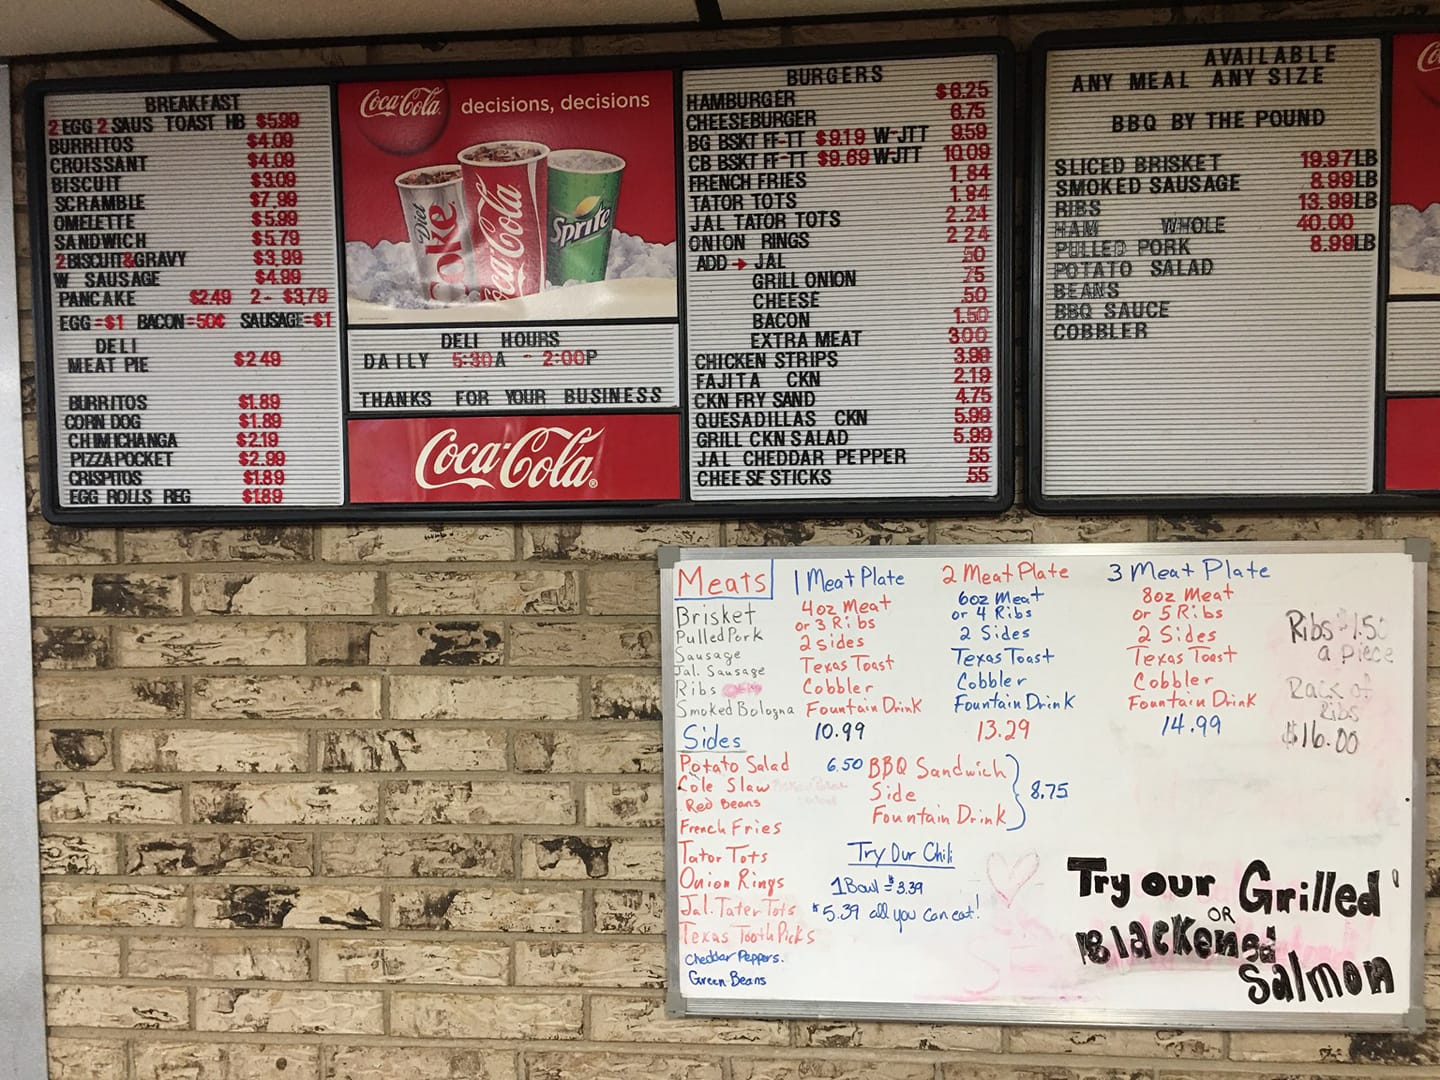 BREAKFAST
2 EGG 2 SAUS TOAST HB $5.99
BURRITOS $4.09
CROISSANT $4.09
BISCUIT $3.09
SCRAMBLE $7.99
OMELETTE $5.99
SANDWICH $5.79
2 BISCUIT&GRAVY $3.99
W SAUSAGE $4.99
PANCAKE $2.49 2 - $3.79
EGG=$1 BACON=50¢ SAUSAGE=$1
DELI
MEAT PIE $2.49
BURRITOS $1.89
CORN DOG $1.89
CHIMICHANGA $2.19
PIZZA POCKET $2.99
CRISPITOS $1.89
EGG ROLLS REG $1.89
Coca-Cola decisions, decisions
Diet Coke
Coca-Cola
Sprite
DELI HOURS
DAILY 5:30A - 2:00P
THANKS FOR YOUR BUSINESS
Coca-Cola
BURGERS
HAMBURGER $6.25
CHEESEBURGER 6.75
BG BSKT FF-TT $9.19 W-JTT 9.59
CB BSKT FF-TT $9.69 W-JTT 10.09
FRENCH FRIES 1.84
TATOR TOTS 1.84
JAL TATOR TOTS 2.24
ONION RINGS 2 24
ADD → JAL 50
GRILL ONION 75
CHEESE .50
BACON 1.50
EXTRA MEAT 3.00
CHICKEN STRIPS 3.99
FAJITA CKN 2.19
CKN FRY SAND 4.75
QUESADILLAS CKN 5.99
GRILL CKN SALAD 5.99
JAL CHEDDAR PEPPER .55
CHEESE STICKS .55
AVAILABLE
ANY MEAL ANY SIZE
BBQ BY THE POUND
SLICED BRISKET 19.97LB
SMOKED SAUSAGE 8.99LB
RIBS 13.99LB
HAM WHOLE 40.00
PULLED PORK 8.99LB
POTATO SALAD
BEANS
BBQ SAUCE
COBBLER
Meats
Brisket
Pulled Pork
Sausage
Jal. Sausage
Ribs
Smoked Bologna
1 Meat Plate
4oz Meat
or 3 Ribs
2 sides
Texas Toast
Cobbler
Fountain Drink
10.99
2 Meat Plate
6oz Meat
or 4 Ribs
2 Sides
Texas Toast
Cobbler
Fountain Drink
13.29
3 Meat Plate
8oz Meat
or 5 Ribs
2 Sides
Texas Toast
Cobbler
Fountain Drink
14.99
Ribs $1.50
a piece
Rack of
Ribs
$16.00
Sides
Potato Salad
Cole Slaw
Red Beans
French Fries
Tator Tots
Onion Rings
Jal. Tater Tots
Texas Tooth Picks
Cheddar Peppers.
Green Beans
6.50 BBQ Sandwich
Side
Fountain Drink
8.75
Try Our Chili
1 Bowl = $3.39
$5.39 all you can eat!
Try our Grilled
OR
Blackened
Salmon